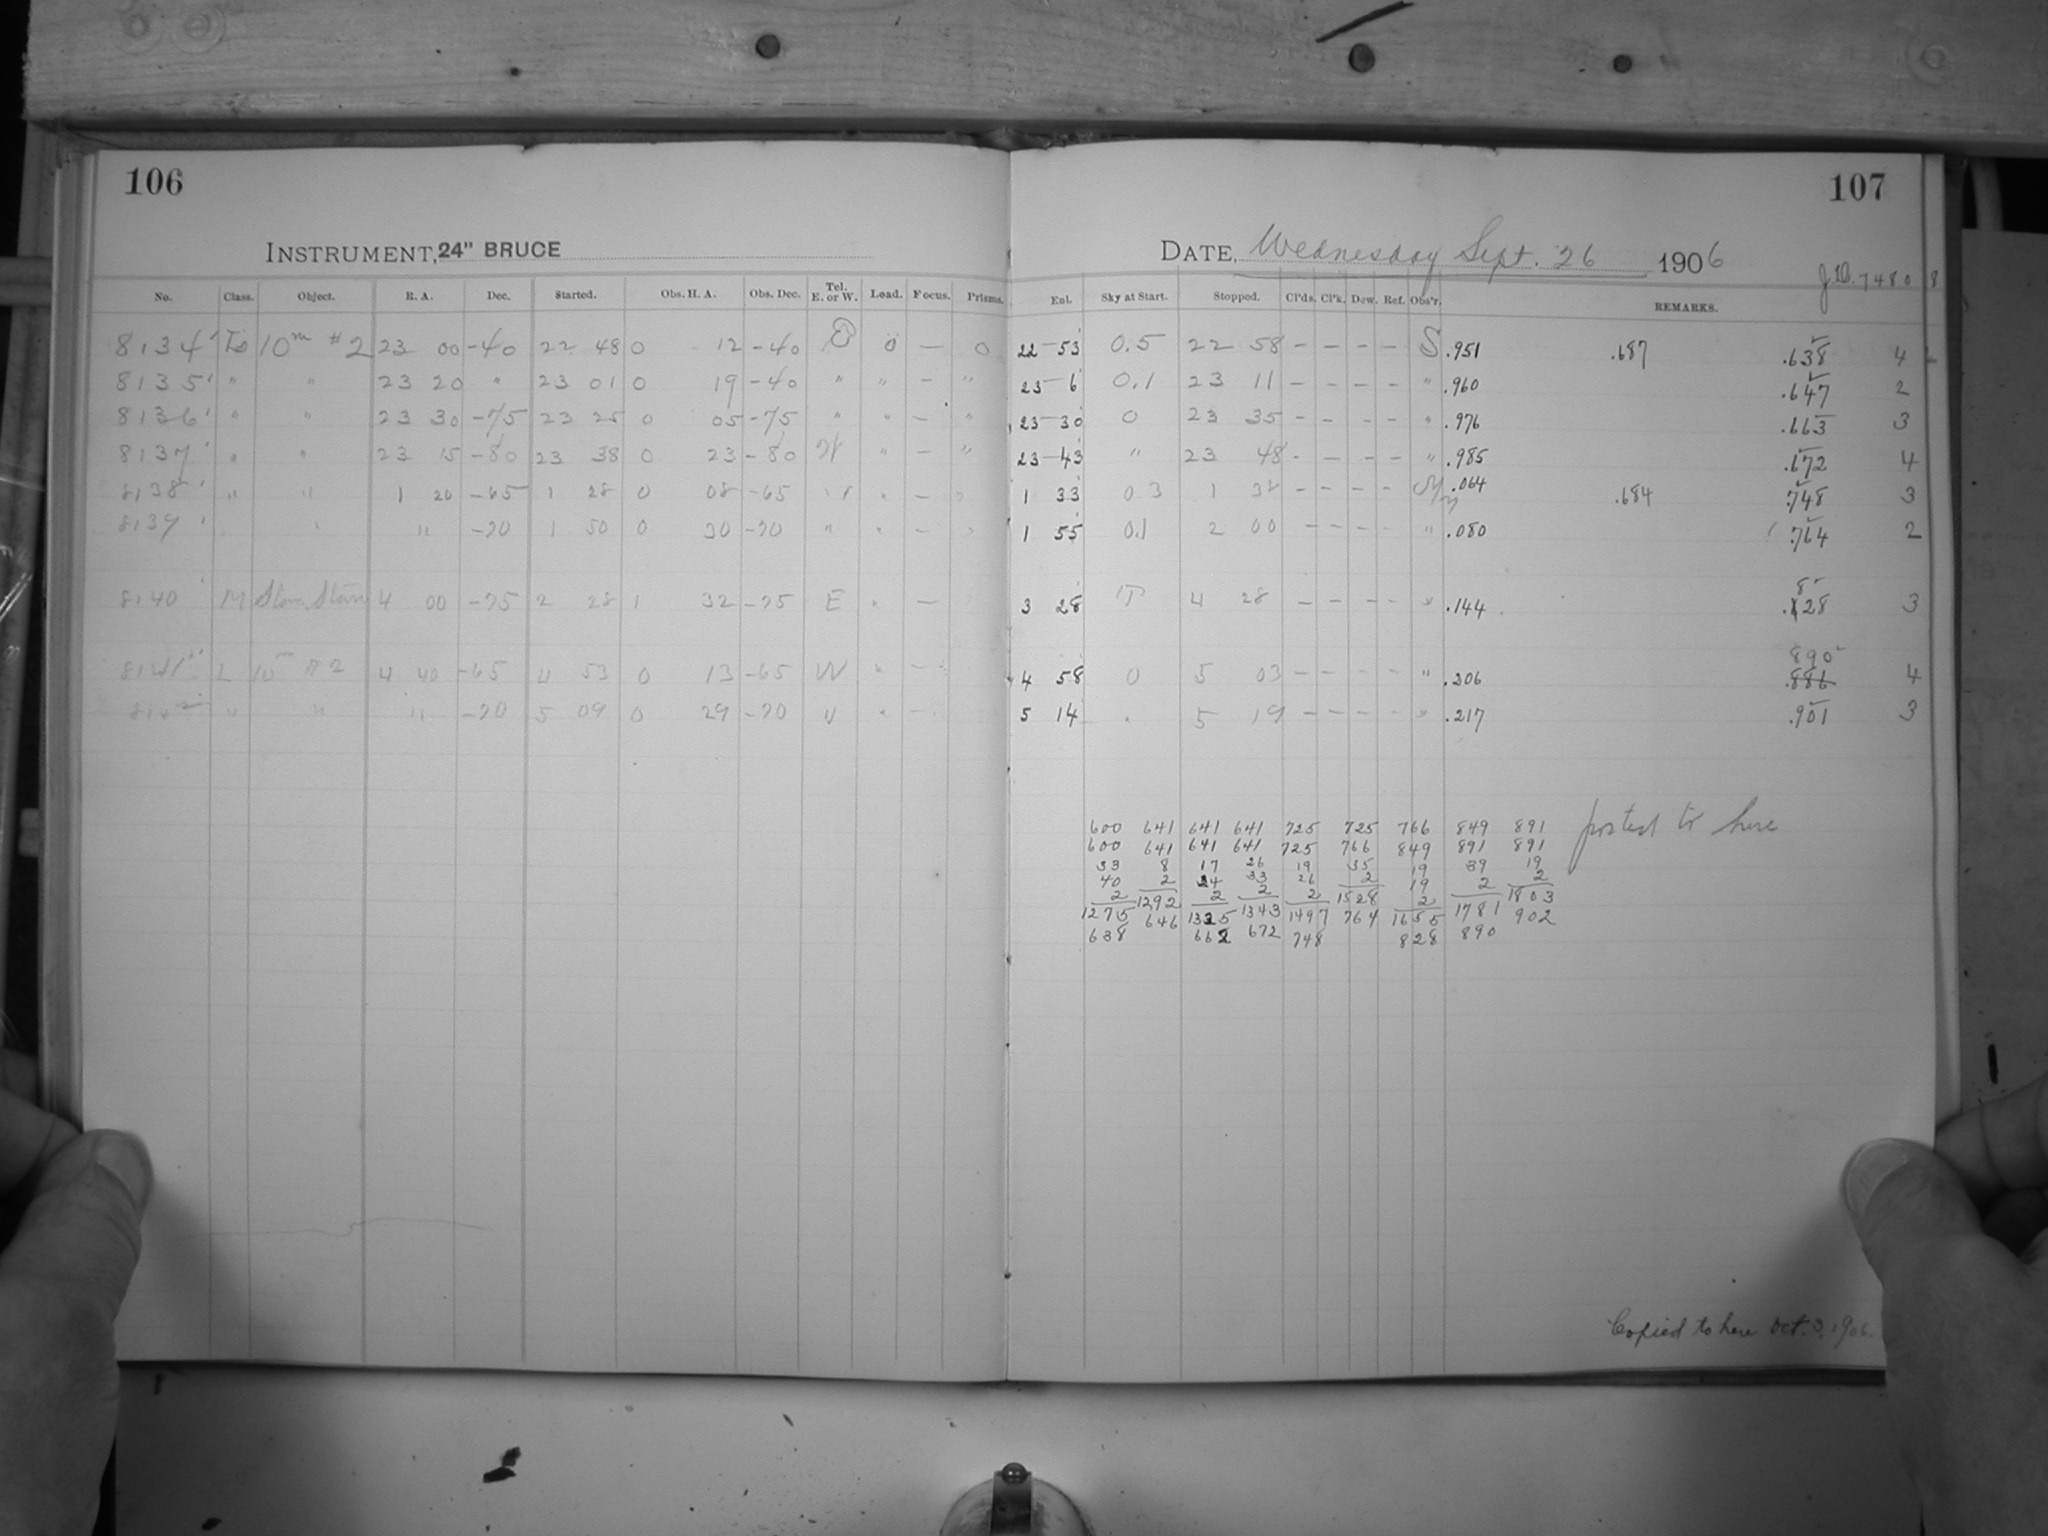 106
107
INSTRUMENT, 24" BRUCE
DATE, Wednesday Sept. 26 1906
J.D. 7480 8
No. Class. Object. R. A. Dec. Started. Obs. H. A. Obs. Dec. Tel. E. or W. Load. Focus. Prisms. Ent. Sky at Start. Stopped. Cl'ds. Cl'k. Dew. Ref. Obs'r. REMARKS.
8134 10m #2 23 00 -40 22 48 0 12 -40 0 — 0 22 53 0.5 22 58 - - - - S .951 .687 .638 4
8135 " " 23 20 " 23 01 0 19 -40 " " - " 23 6 0.1 23 11 - - - - " .960 .647 2
8136 " " 23 30 -75 23 25 0 05 -75 " " - " 23 30 0 23 35 - - - - " .976 .663 3
8137 " " 23 15 -80 23 38 0 23 -80 W " - " 23 43 " 23 48 - - - - " .985 .672 4
8138 " " 1 20 -65 1 28 0 08 -65 " " - 1 33 0.3 1 38 - - - - .064 .684 .748 3
8139 " -70 1 50 0 30 -70 " " - 1 55 0.1 2 00 - - - - " .080 .764 2
8140 M 4 00 -75 2 28 1 32 -75 E " — 3 28 4 28 - - - - " .144 8 .128 3
8141 L 10m #2 4 40 -65 4 53 0 13 -65 W " - 4 58 0 5 03 - - - - " .206 890 .886 4
" " " -70 5 09 0 29 -70 " " - 5 14 5 19 - - - - " .217 .901 3
600 641 641 641 725 725 766 849 891 posted to here
600 641 641 641 725 766 849 891 891
33 8 17 26 19 35 19 39 19
40 2 24 33 26 2 19 2 2
2 1292 2 2 2 1528 2 1781 1803
1275 646 1325 1343 1497 764 1655 890 902
638 662 672 748 828
Copied to here Oct. 3, 1906.